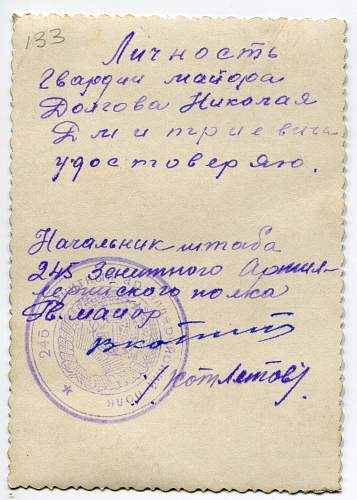 133
Личность
Гвардии майора
Долгова Николая
Дмитриевича
удостоверяю.
Начальник штаба
245 Зенитного Артил-
лерийского полка
Гв. майор
/Котлетов/